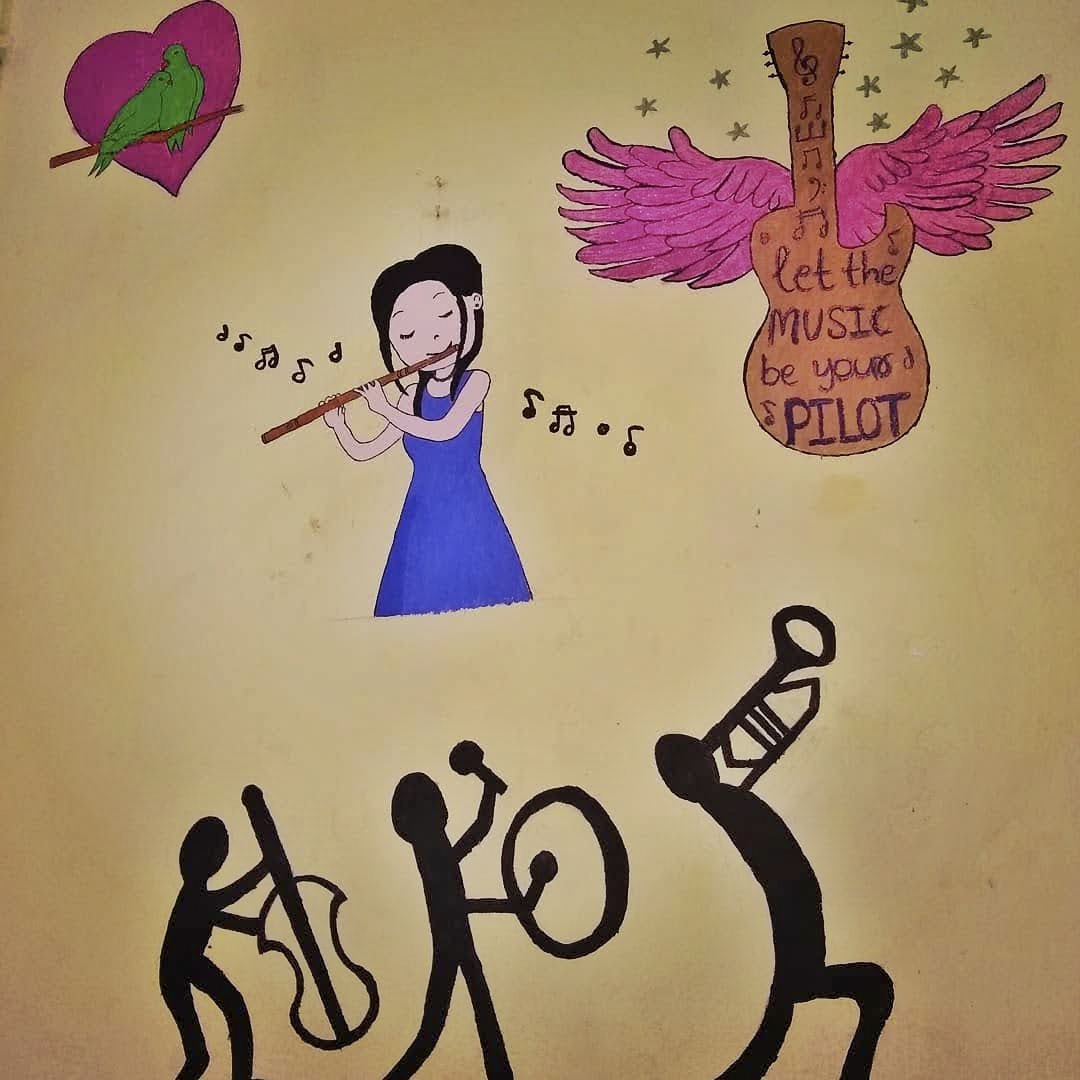 let the
MUSIC
be your
PILOT